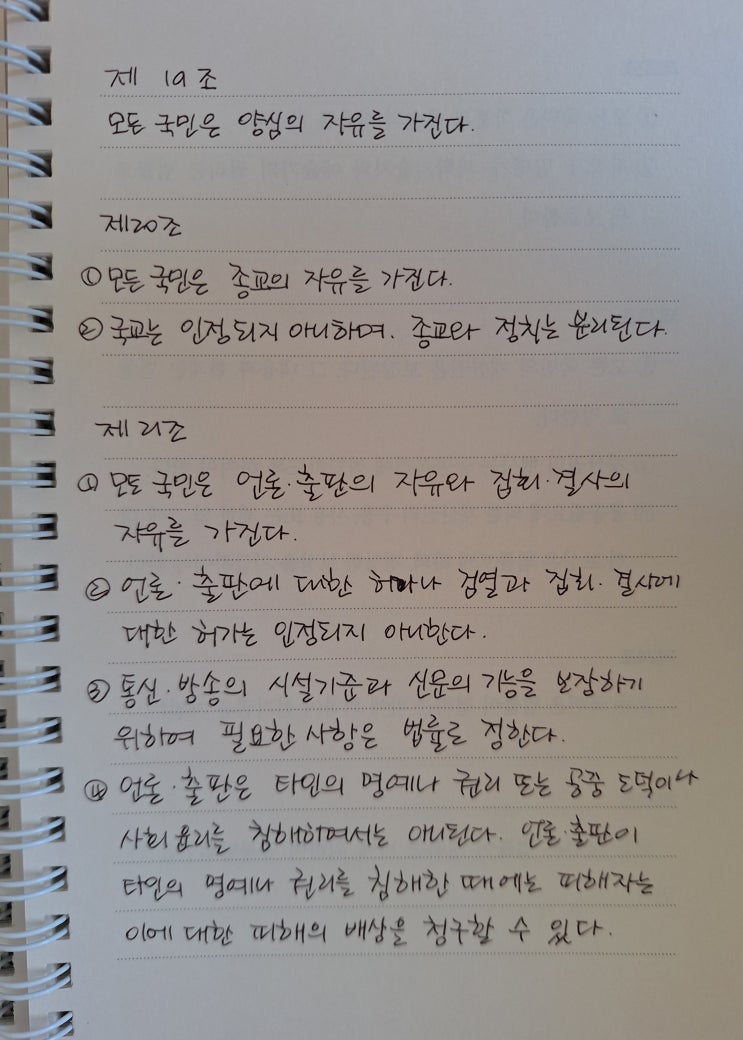 제 19조
모든 국민은 양심의 자유를 가진다.
제20조
① 모든 국민은 종교의 자유를 가진다.
② 국교는 인정되지 아니하며. 종교와 정치는 분리된다.
제 21조
① 모든 국민은 언론·출판의 자유와 집회·결사의
자유를 가진다.
② 언론·출판에 대한 허가나 검열과 집회·결사에
대한 허가는 인정되지 아니한다.
③ 통신·방송의 시설기준과 신문의 기능을 보장하기
위하여 필요한 사항은 법률로 정한다.
④ 언론·출판은 타인의 명예나 권리 또는 공중 도덕이나
사회윤리를 침해하여서는 아니된다. 언론·출판이
타인의 명예나 권리를 침해한 때에는 피해자는
이에 대한 피해의 배상을 청구할 수 있다.